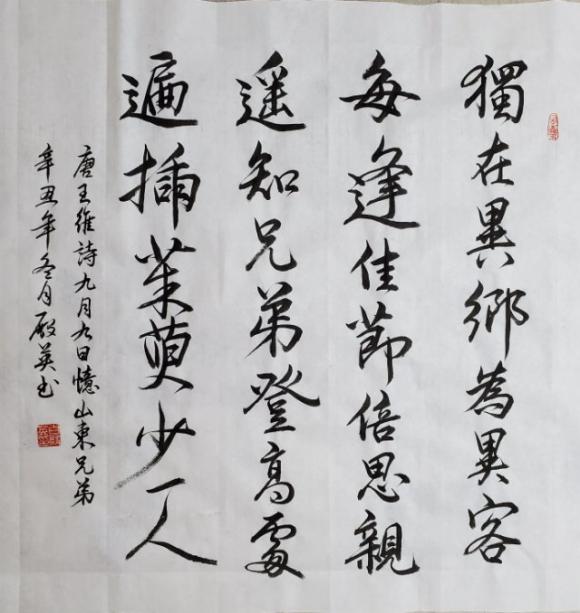 獨在異鄉為異客
每逢佳節倍思親
遥知兄弟登高處
遍插茱萸少一人
唐王維詩九月九日憶山東兄弟
辛丑年冬月殿英书